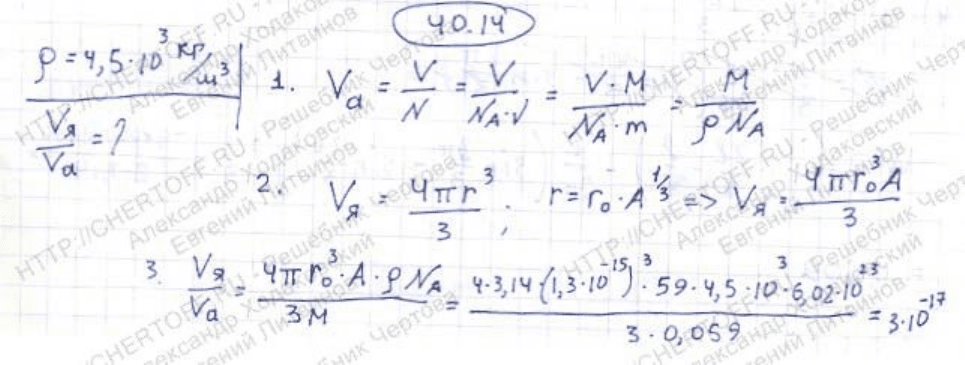 40.14
ρ = 4,5·10³ кг/м³
Vя/Vа = ?
1. Vа = V/N = V/(N_A·ν) = V·M/(N_A·m) = M/(ρ N_A)
2. Vя = 4πr³/3, r = r₀·A^(1/3) => Vя = 4πr₀³A/3
3. Vя/Vа = 4πr₀³·A·ρ N_A/3M = 4·3,14·(1,3·10⁻¹⁵)³·59·4,5·10³·6,02·10²³/(3·0,059) = 3·10⁻¹⁷
HTTP://CHERTOFF.RU - Решебник Чертова
Александр Ходаковский
Евгений Литвинов